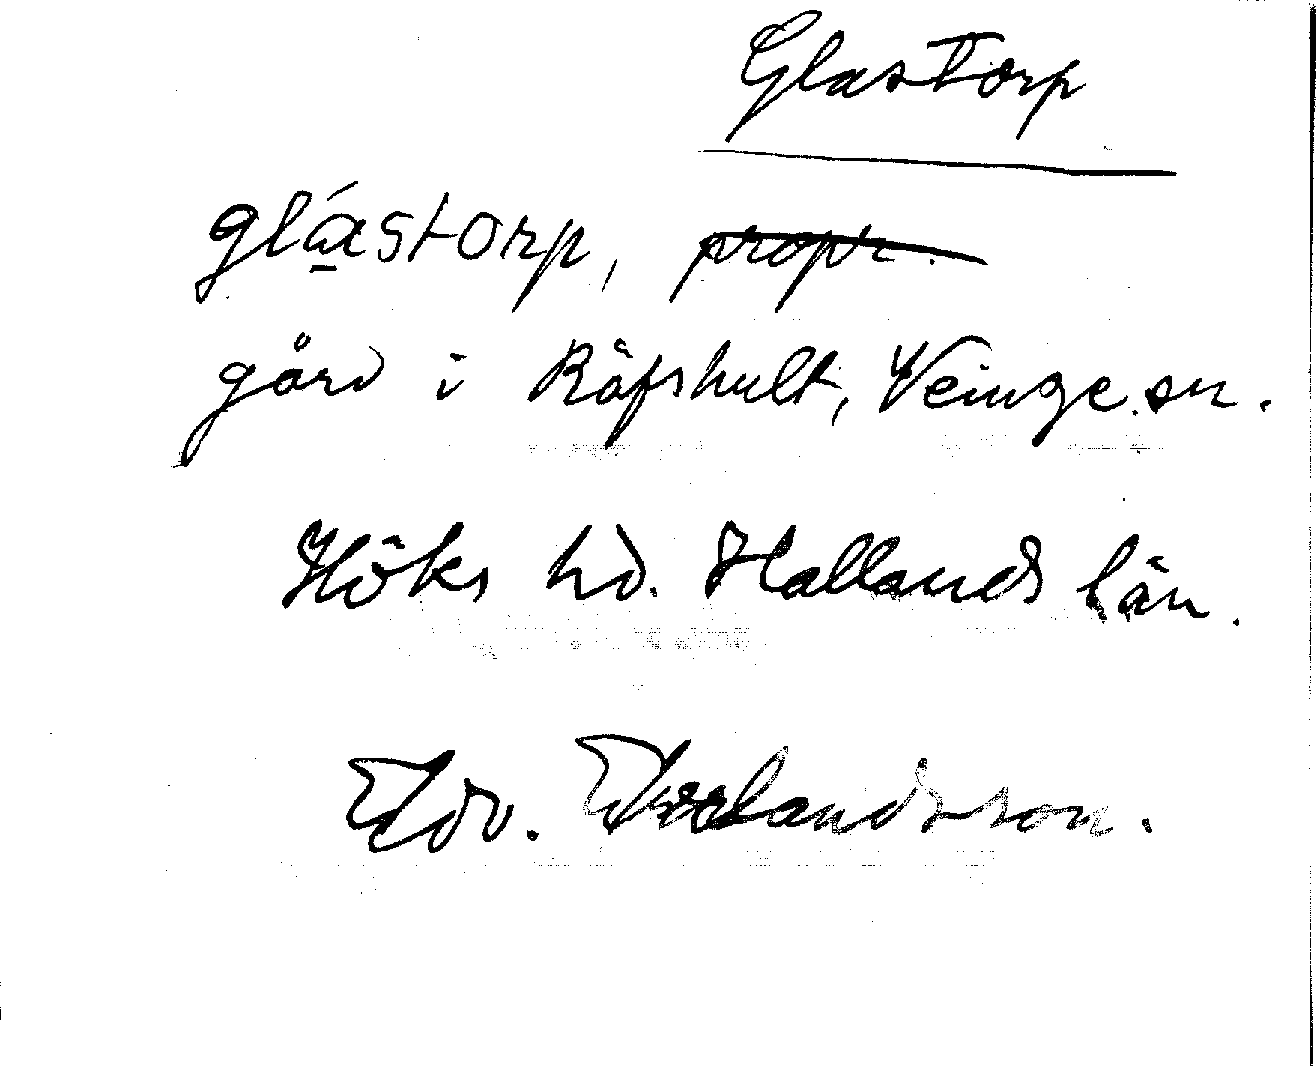 Glastorp
glástorp, propr.
gård i Råfshult, Veinge sn.
Höks hd. Hallands län.
Edv. Erlandsson.